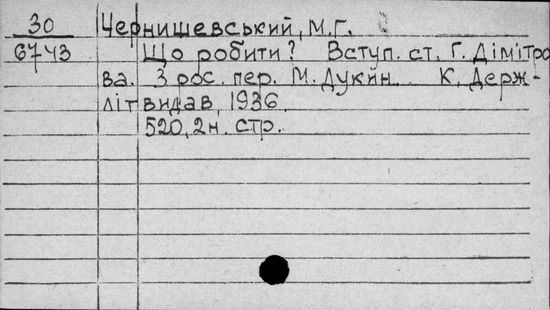 30 Чернишевський, М.Г.
6743 Що робити? Вступ. ст. Г. Дімітро
ва. З рос. пер. М. Дукин. К, Держ-
літвидав, 1936.
520, 2н. стр.